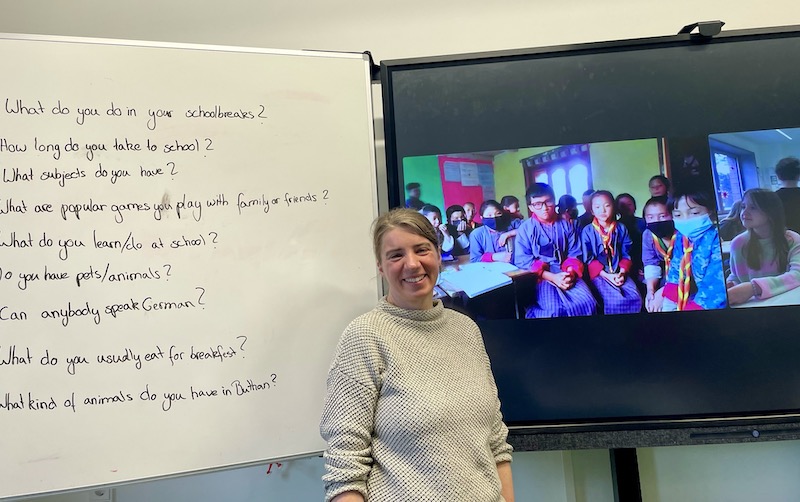 What do you do in your schoolbreaks?
How long do you take to school?
What subjects do you have?
What are popular games you play with family or friends?
What do you learn/do at school?
Do you have pets/animals?
Can anybody speak German?
What do you usually eat for breakfest?
What kind of animals do you have in Buthan?